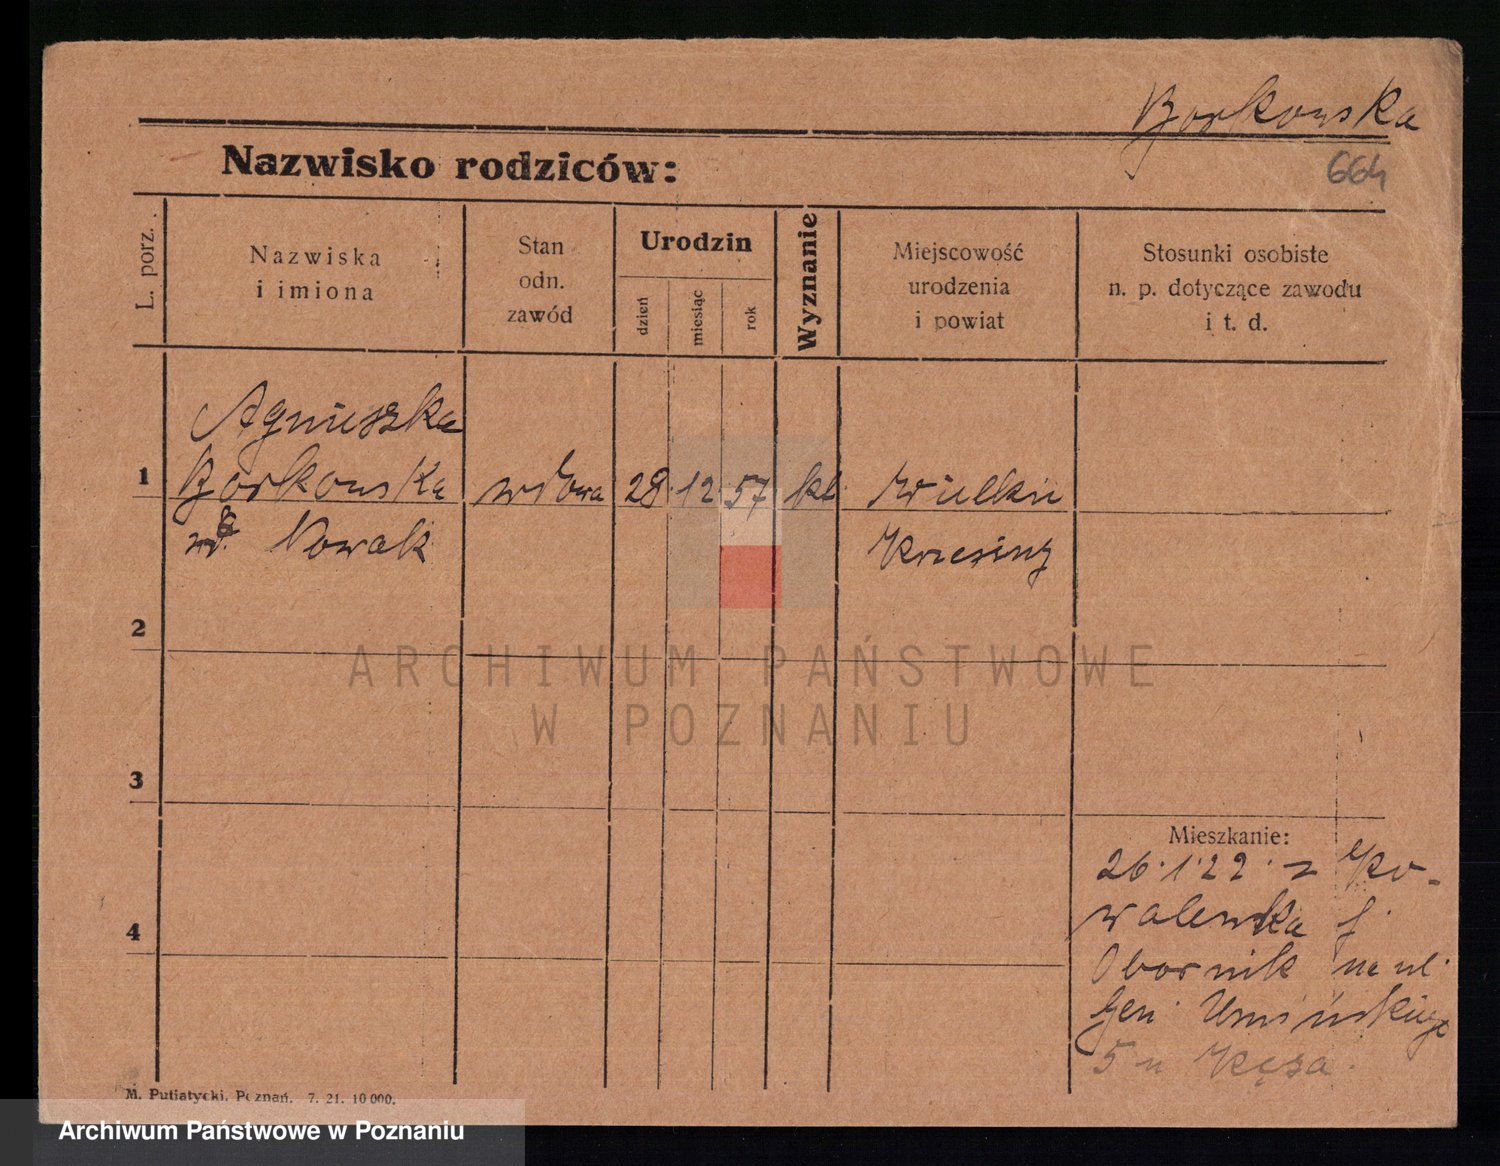 Borkowska
664
Nazwisko rodziców:
L. porz.
Nazwiska
i imiona
Stan
odn.
zawód
Urodzin
dzień
miesiąc
rok
Wyznanie
Miejscowość
urodzenia
i powiat
Stosunki osobiste
n. p. dotyczące zawodu
i t. d.
Agnieszka
1 Borkowska wdowa 28 12 57 kt. Wielkie
Nowak Krzesiny
2
3
4
Mieszkanie:
26.1.22. z Ko-
walewka p.
Obornik na ul.
Gen. Umińskiego
5 u Kęsa.
M. Putiatycki, Poznań. 7. 21. 10 000.
ARCHIWUM PAŃSTWOWE
W POZNANIU
Archiwum Państwowe w Poznaniu